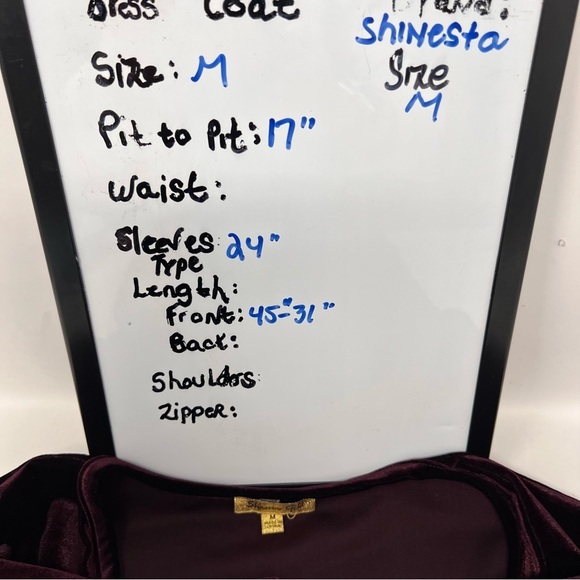 Dress Coat
Brand:
SHINESTA
Size
M
Size: M
Pit to Pit: 17"
Waist:
Sleeves 24"
Type
Length:
Front: 45"-31"
Back:
Shoulders:
Zipper:
M